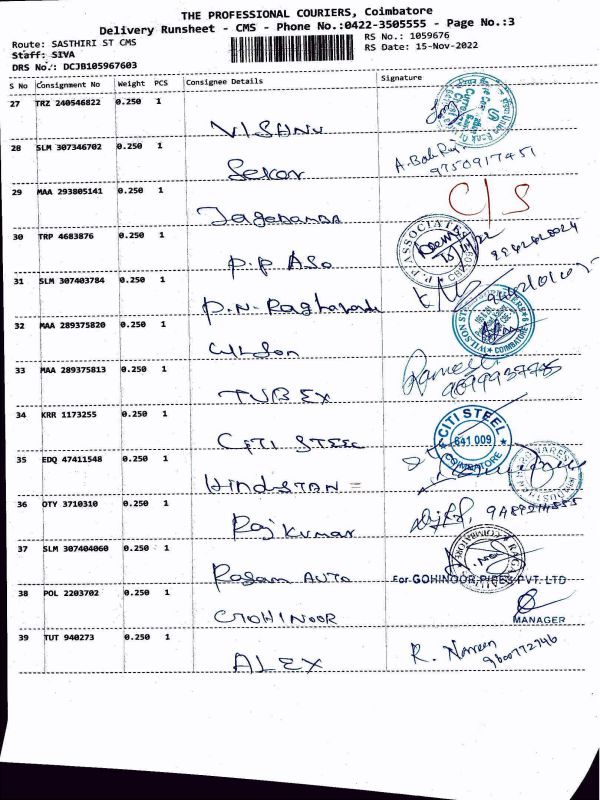 THE PROFESSIONAL COURIERS, Coimbatore
Delivery Runsheet - CMS - Phone No.:0422-3505555 - Page No.:3
Route: SASTHIRI ST CMS
RS No.: 1059676
Staff: SIVA
RS Date: 15-Nov-2022
DRS No.: DCJB105967603
S No Consignment No Weight PCS Consignee Details Signature
27 TRZ 240546822 0.250 1
VISANU
28 SLM 307346702 0.250 1
Sekar
A. Bala
9750917451
29 MAA 293805141 0.250 1
C/S
30 TRP 4683876 0.250 1
P.P ASO
P. P. ASSOCIATES
15/11/22
31 SLM 307403784 0.250 1
P.N. Raghavandr
32 MAA 289375820 0.250 1
WILSON
COIMBATORE
33 MAA 289375813 0.250 1
TUBEX
34 KRR 1173255 0.250 1
CITI STEEL
CITI STEEL
641 009
COIMBATORE
35 EDQ 47411548 0.250 1
HINDSTAN =
36 OTY 3710310 0.250 1
Raj Kumar
37 SLM 307404060 0.250 1
Ragam AUTO
For GOHINOOR PIPES PVT. LTD
38 POL 2203702 0.250 1
GOHINOOR
MANAGER
39 TUT 940273 0.250 1
ALEX
R. Naveen
9600772746